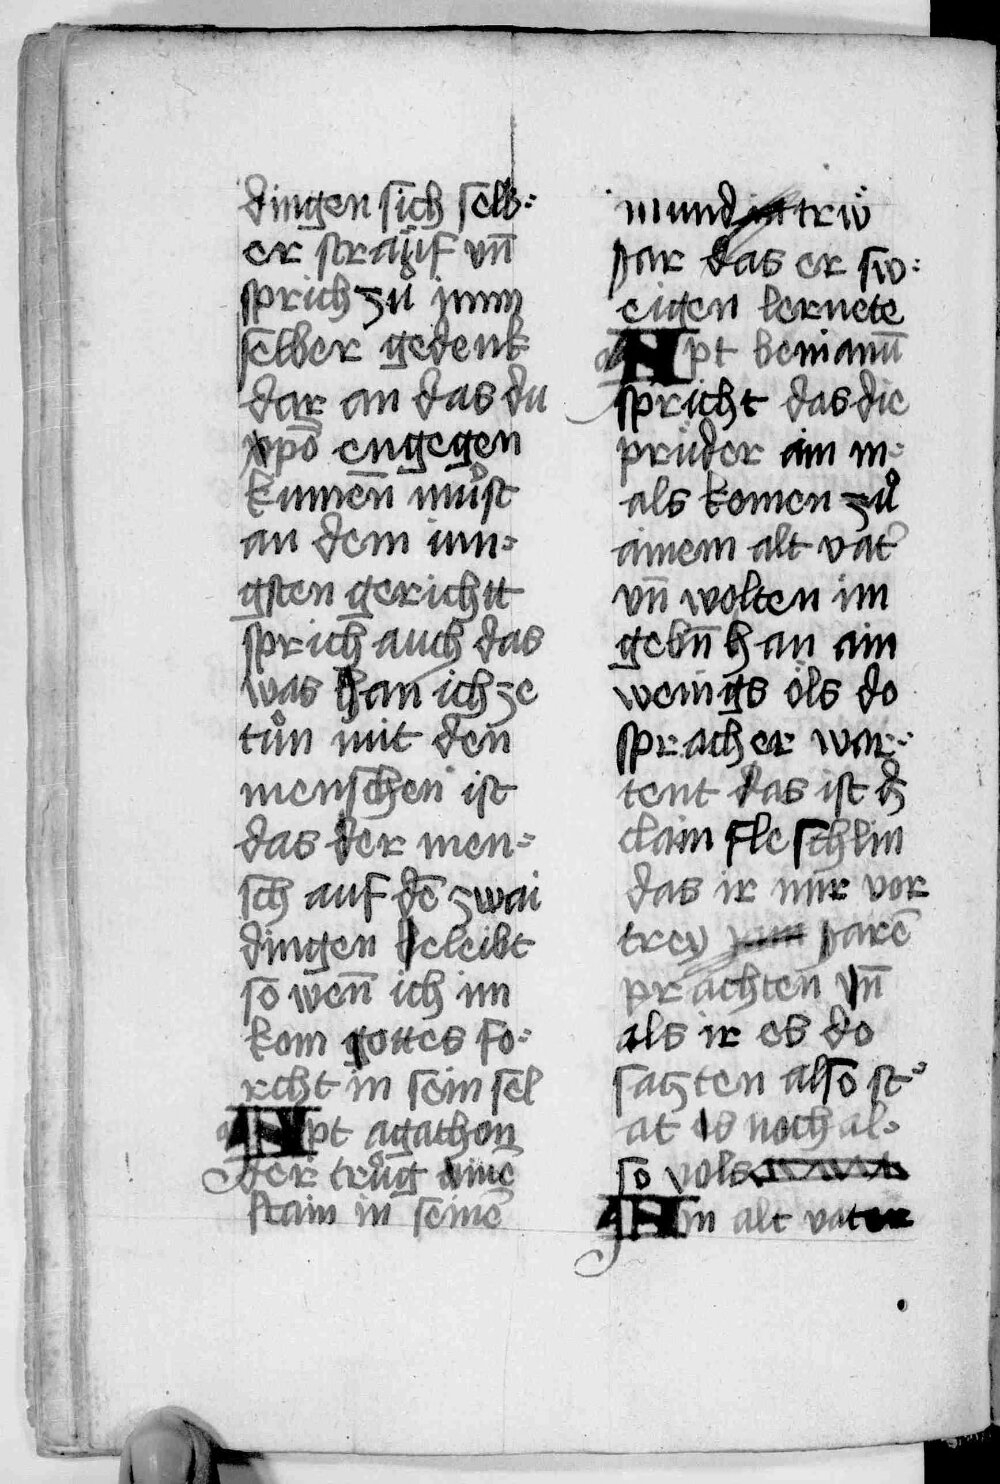 dingen sich selb:
er straͧf vn̄
sprich zuͦ jmm
selber gedenk
dar an das du
xpō engegen
kumen̄ muͦst
an dem iun:
gsten gerichtt
sprich auch das
was han ich ze
tuͦn mit den
menschen ist
das der men:
sch auf dē zwai
dingen beleibt
so wen̄ ich im
kom gottes fo:
rcht in sein sel
Apt agathon
der truͦg aine
stain in seinē
mund trw̋
jar das er sw:
eigen lernete
Apt beniamī
spricht das die
prüder ain m:
als komen zuͦ
ainem alt vat᷑
vn̄ wolten im
gebn̄ han ain
wenigs öls do
sprach er war:
tent das ist dz
clain fleschlin
das ir mir vor
trey jarē
prachten vn̄
als ir es do
saczten also st:
at es noch al:
so vols
Ain alt vater